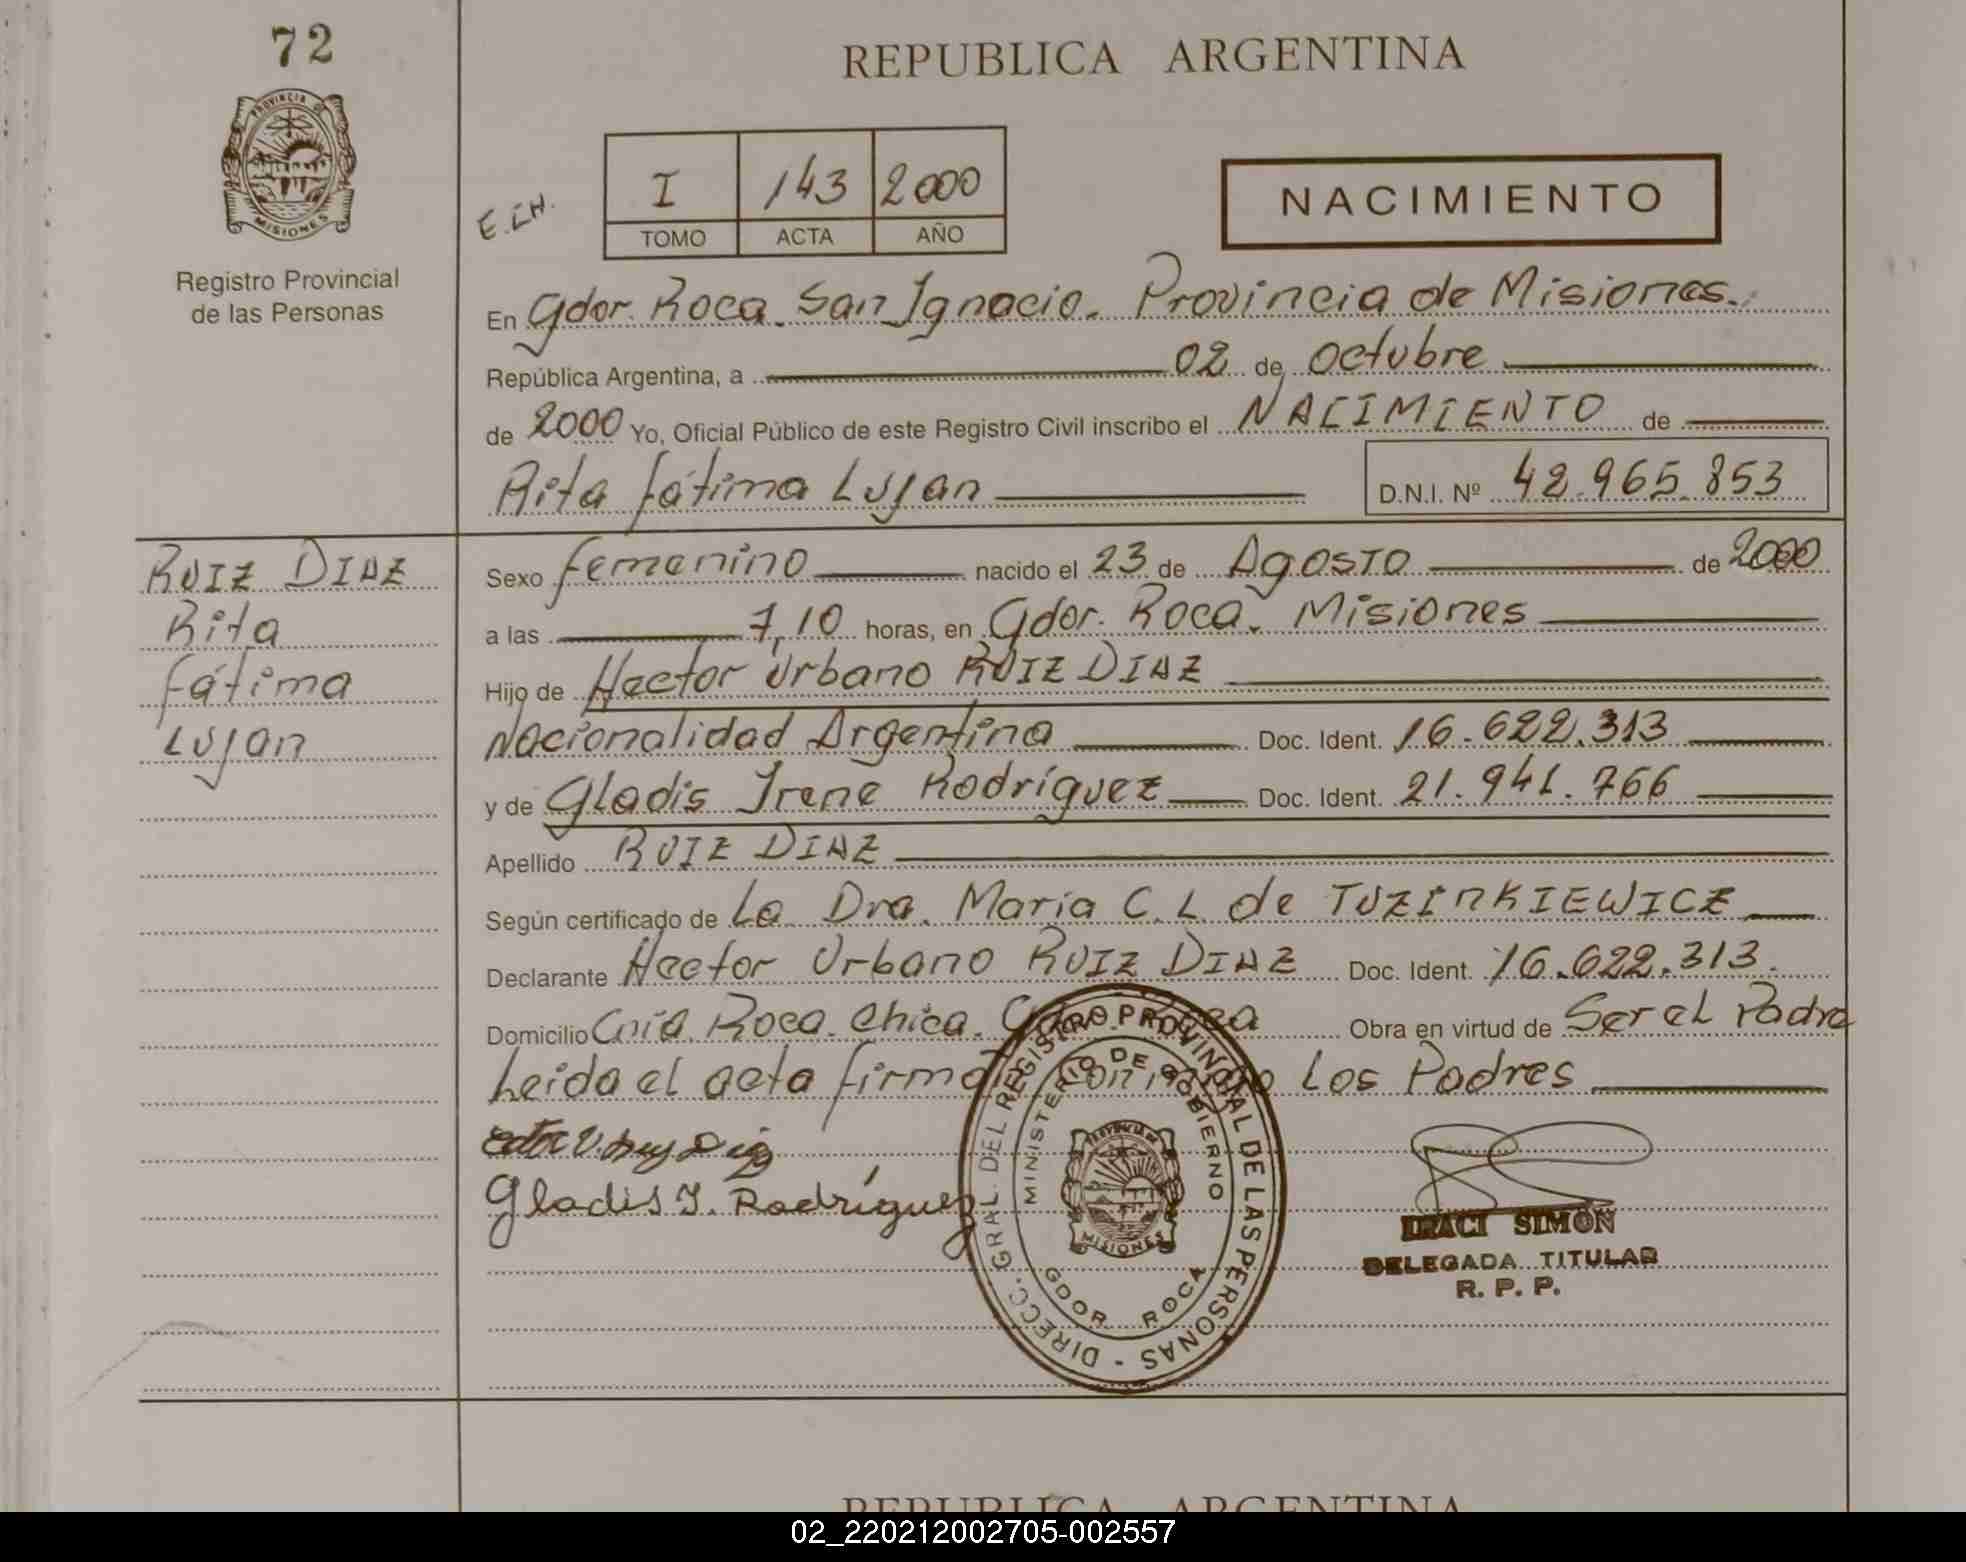 72
REPUBLICA ARGENTINA
PROVINCIA DE
MISIONES
Registro Provincial
de las Personas
E.CH.
I 143 2000
TOMO ACTA AÑO
NACIMIENTO
En Gdor. Roca. San Ignacio. Provincia de Misiones.
República Argentina, a 02 de Octubre
de 2000 Yo, Oficial Público de este Registro Civil inscribo el NACIMIENTO de
Rita fátima Lujan D.N.I. Nº 42.965.853
RUIZ DIAZ
Rita
fátima
Lujan
Sexo femenino nacido el 23 de Agosto de 2000
a las 7,10 horas, en Gdor. Roca. Misiones
Hijo de Hector Urbano RUIZ DIAZ
Nacionalidad Argentina Doc. Ident. 16.622.313
y de Gladis Irene Rodríguez Doc. Ident. 21.941.766
Apellido RUIZ DIAZ
Según certificado de La Dra. Maria C. L. de TUZINKIEWICZ
Declarante Hector Urbano RUIZ DIAZ Doc. Ident. 16.622.313.
Domicilio Cnia. Roca. Chica. Obra en virtud de Ser el Padre
Leida el acta firma Los Padres
Gladis I. Rodríguez
DIRECC. GRAL. DEL REGISTRO PROVINCIAL DE LAS PERSONAS -
MINISTERIO DE GOBIERNO
PROVINCIA DE
MISIONES
GDOR. ROCA
IRACI SIMÓN
DELEGADA TITULAR
R. P. P.
REPUBLICA ARGENTINA
02_220212002705-002557